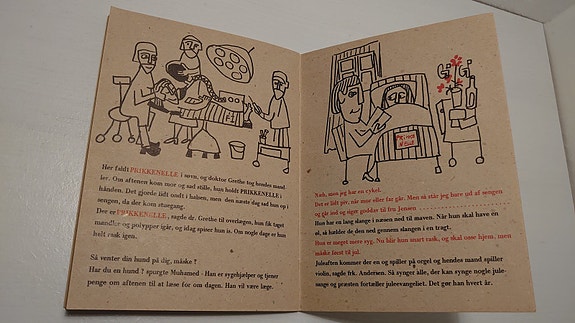 Her faldt PRIKKENELLE i søvn, og doktor Grethe tog hendes mand-
ler. Om aftenen kom mor og sad stille, hun holdt PRIKKENELLE i
hånden. Det gjorde lidt ondt i halsen, men den næste dag sad hun op i
sengen, da der kom storgang.
Der er PRIKKENELLE, sagde dr. Grethe til overlægen, hun fik taget
mandler og polypper igår, og idag spiser hun is. Om nogle dage er hun
helt rask igen.
Så venter din hund på dig, måske ?
Har du en hund ? spurgte Muhamed - Han er sygehjælper og tjener
penge om aftenen til at læse for om dagen. Han vil være læge.
PRIKKE
NELLE
Næh, men jeg har en cykel.
Det er lidt piv, når mor eller far går. Men så står jeg bare ud af sengen
og går ind og siger goddag til fru Jensen
Hun har en lang slange i næsen ned til maven. Når hun skal have en
øl, så hælder de den ned gennem slangen i en tragt.
Hun er meget mere syg. Nu blir hun snart rask, og skal osse hjem, men
måske først til jul.
Juleaften kommer der en og spiller på orgel og hendes mand spiller
violin, sagde frk. Andersen. Så synger alle, der kan synge nogle jule-
salmer og præsten fortæller juleevangeliet. Det gør han hvert år.